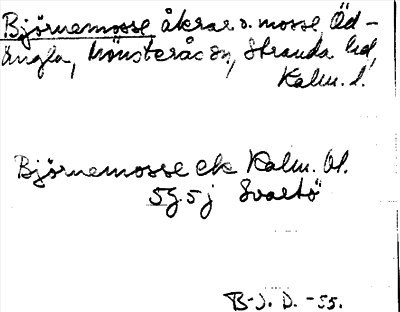 Björnemosse åkrar o. mosse, Öd-
ängla, Mönsterås sn, Stranda hd,
Kalm. l.
Björnemosse ek Kalm. bl.
5g5j Svartö
B-J. D. -55.